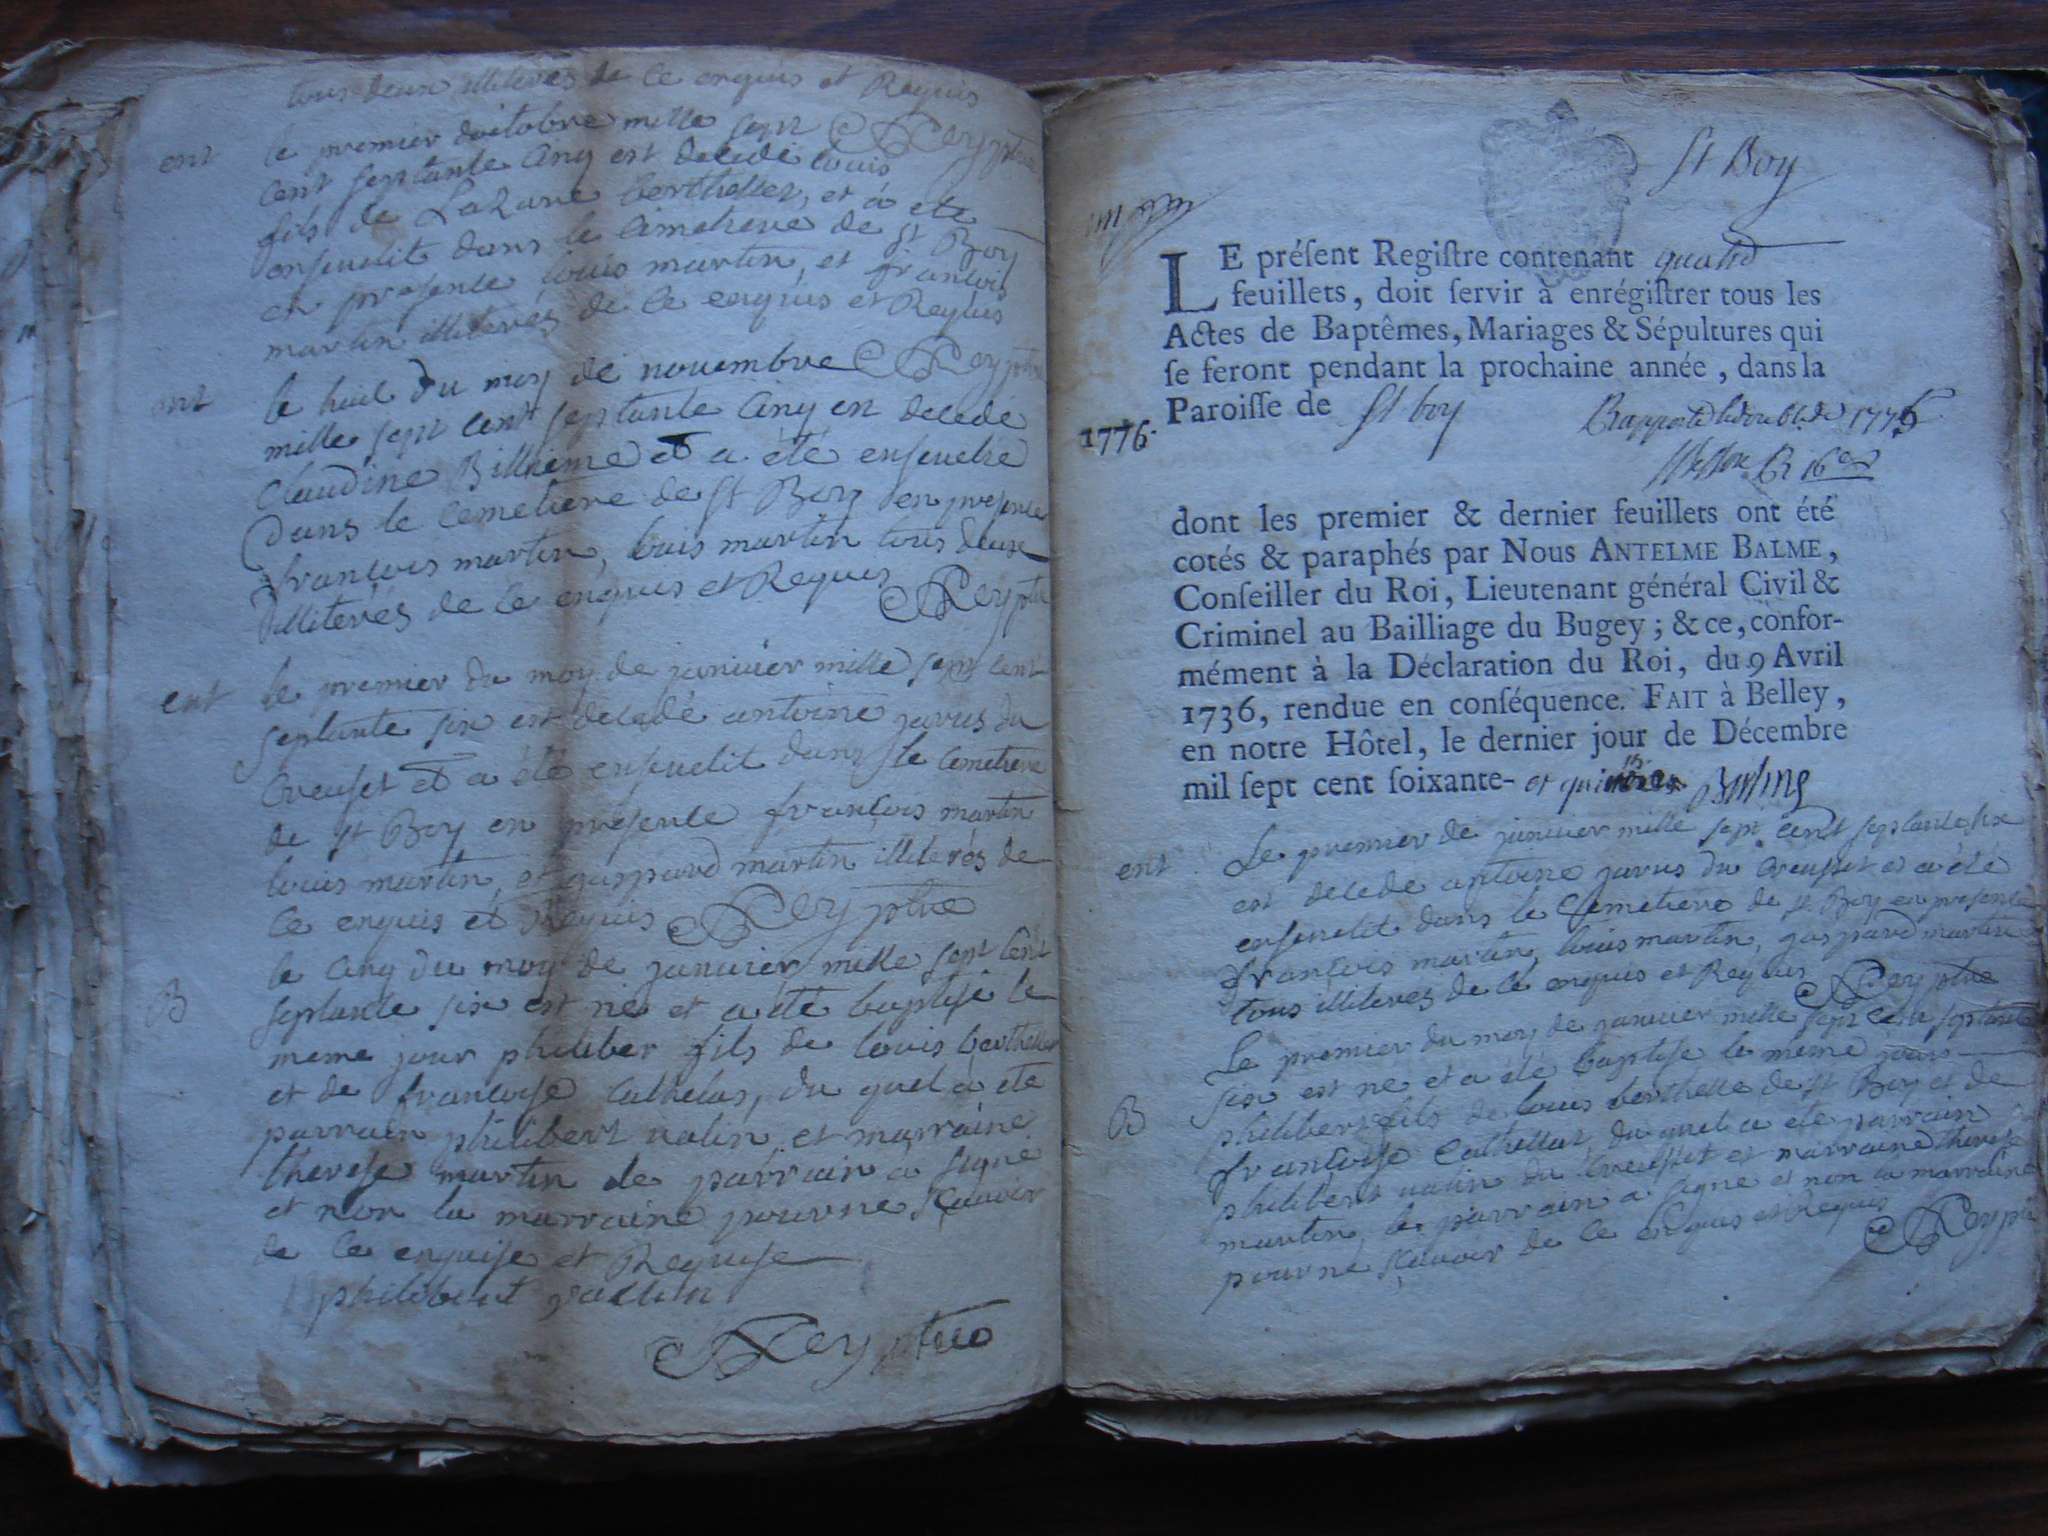 tous deux illiterés de ce enquis et Requis
ent le premier doctobre mille sept Rey ptre
cent septante cinq est decedé louis
fils de Lazare berthellet, et à ete
ensevelit dans le cimetiere de st Boy
en presence louis martin, et francois
martin illiterés de ce enquis et Requis
ent le huit du moy de novembre Rey ptre
mille sept cent septante cinq en decedé
Claudine Billieme et a été ensevelie
Dans le cemetiere de st Boy en presence
francois martin, louis martin tous deux
illiterés de ce enquis et Requis Rey ptre
ent le premier du moy de janvier mille sept cent
septante six est decedé antoine javus du
Creuset et a été ensevelit dans le cemetiere
de st Boy en presence francois martin
louis martin, et gaspard martin illiterés de
ce enquis et Requis Rey ptre
le cinq du moy de janvier mille sept cent
B septante six est né et a été baptisé le
meme jour philiber fils de louis berthellet
et de francoise Cathelas, du quel à ete
parrain philibert valin et marraine
therese martin le parrain à signé
et non la marraine pour ne scavoir
de ce enquise et Requise
philibert vallin
Rey ptre
St Boy
LE préſent Regiſtre contenant quatre
feuillets, doit ſervir à enrégiſtrer tous les
Actes de Baptêmes, Mariages & Sépultures qui
ſe feront pendant la prochaine année, dans la
Paroiſſe de St boy
1776. Rapporté le double 1776
dont les premier & dernier feuillets ont été
cotés & paraphés par Nous ANTELME BALME,
Conſeiller du Roi, Lieutenant général Civil &
Criminel au Bailliage du Bugey; & ce, confor-
mément à la Déclaration du Roi, du 9 Avril
1736, rendue en conſéquence. FAIT à Belley,
en notre Hôtel, le dernier jour de Décembre
mil ſept cent ſoixante- et quinze
Le premier de janvier mille sept cent septante six
ent est decede antoine javus du Creuset et a été
ensevelit dans le Cemetiere de st Boy en presence
francois martin, louis martin, gaspard martin
tous illiteres de ce enquis et Requis Rey ptre
Le premier du moy de janvier mille sept cent septante
six est ne et a été baptise le meme jour
B philibert fils de louis berthelle de st Boy et de
francoise Cathellas, du quel a ete parrain
philibert valin du Creuset et marraine therese
martin, le parrain a signe et non la marraine
pour ne scavoir de ce enquis et Requis
Rey ptre